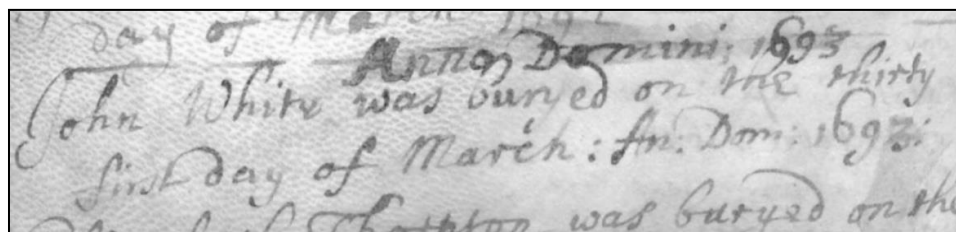 day of March 1692
Anno Domini: 1693
John White was buryed on the thirty
first day of March: An: Dom: 1693:
was buryed on the